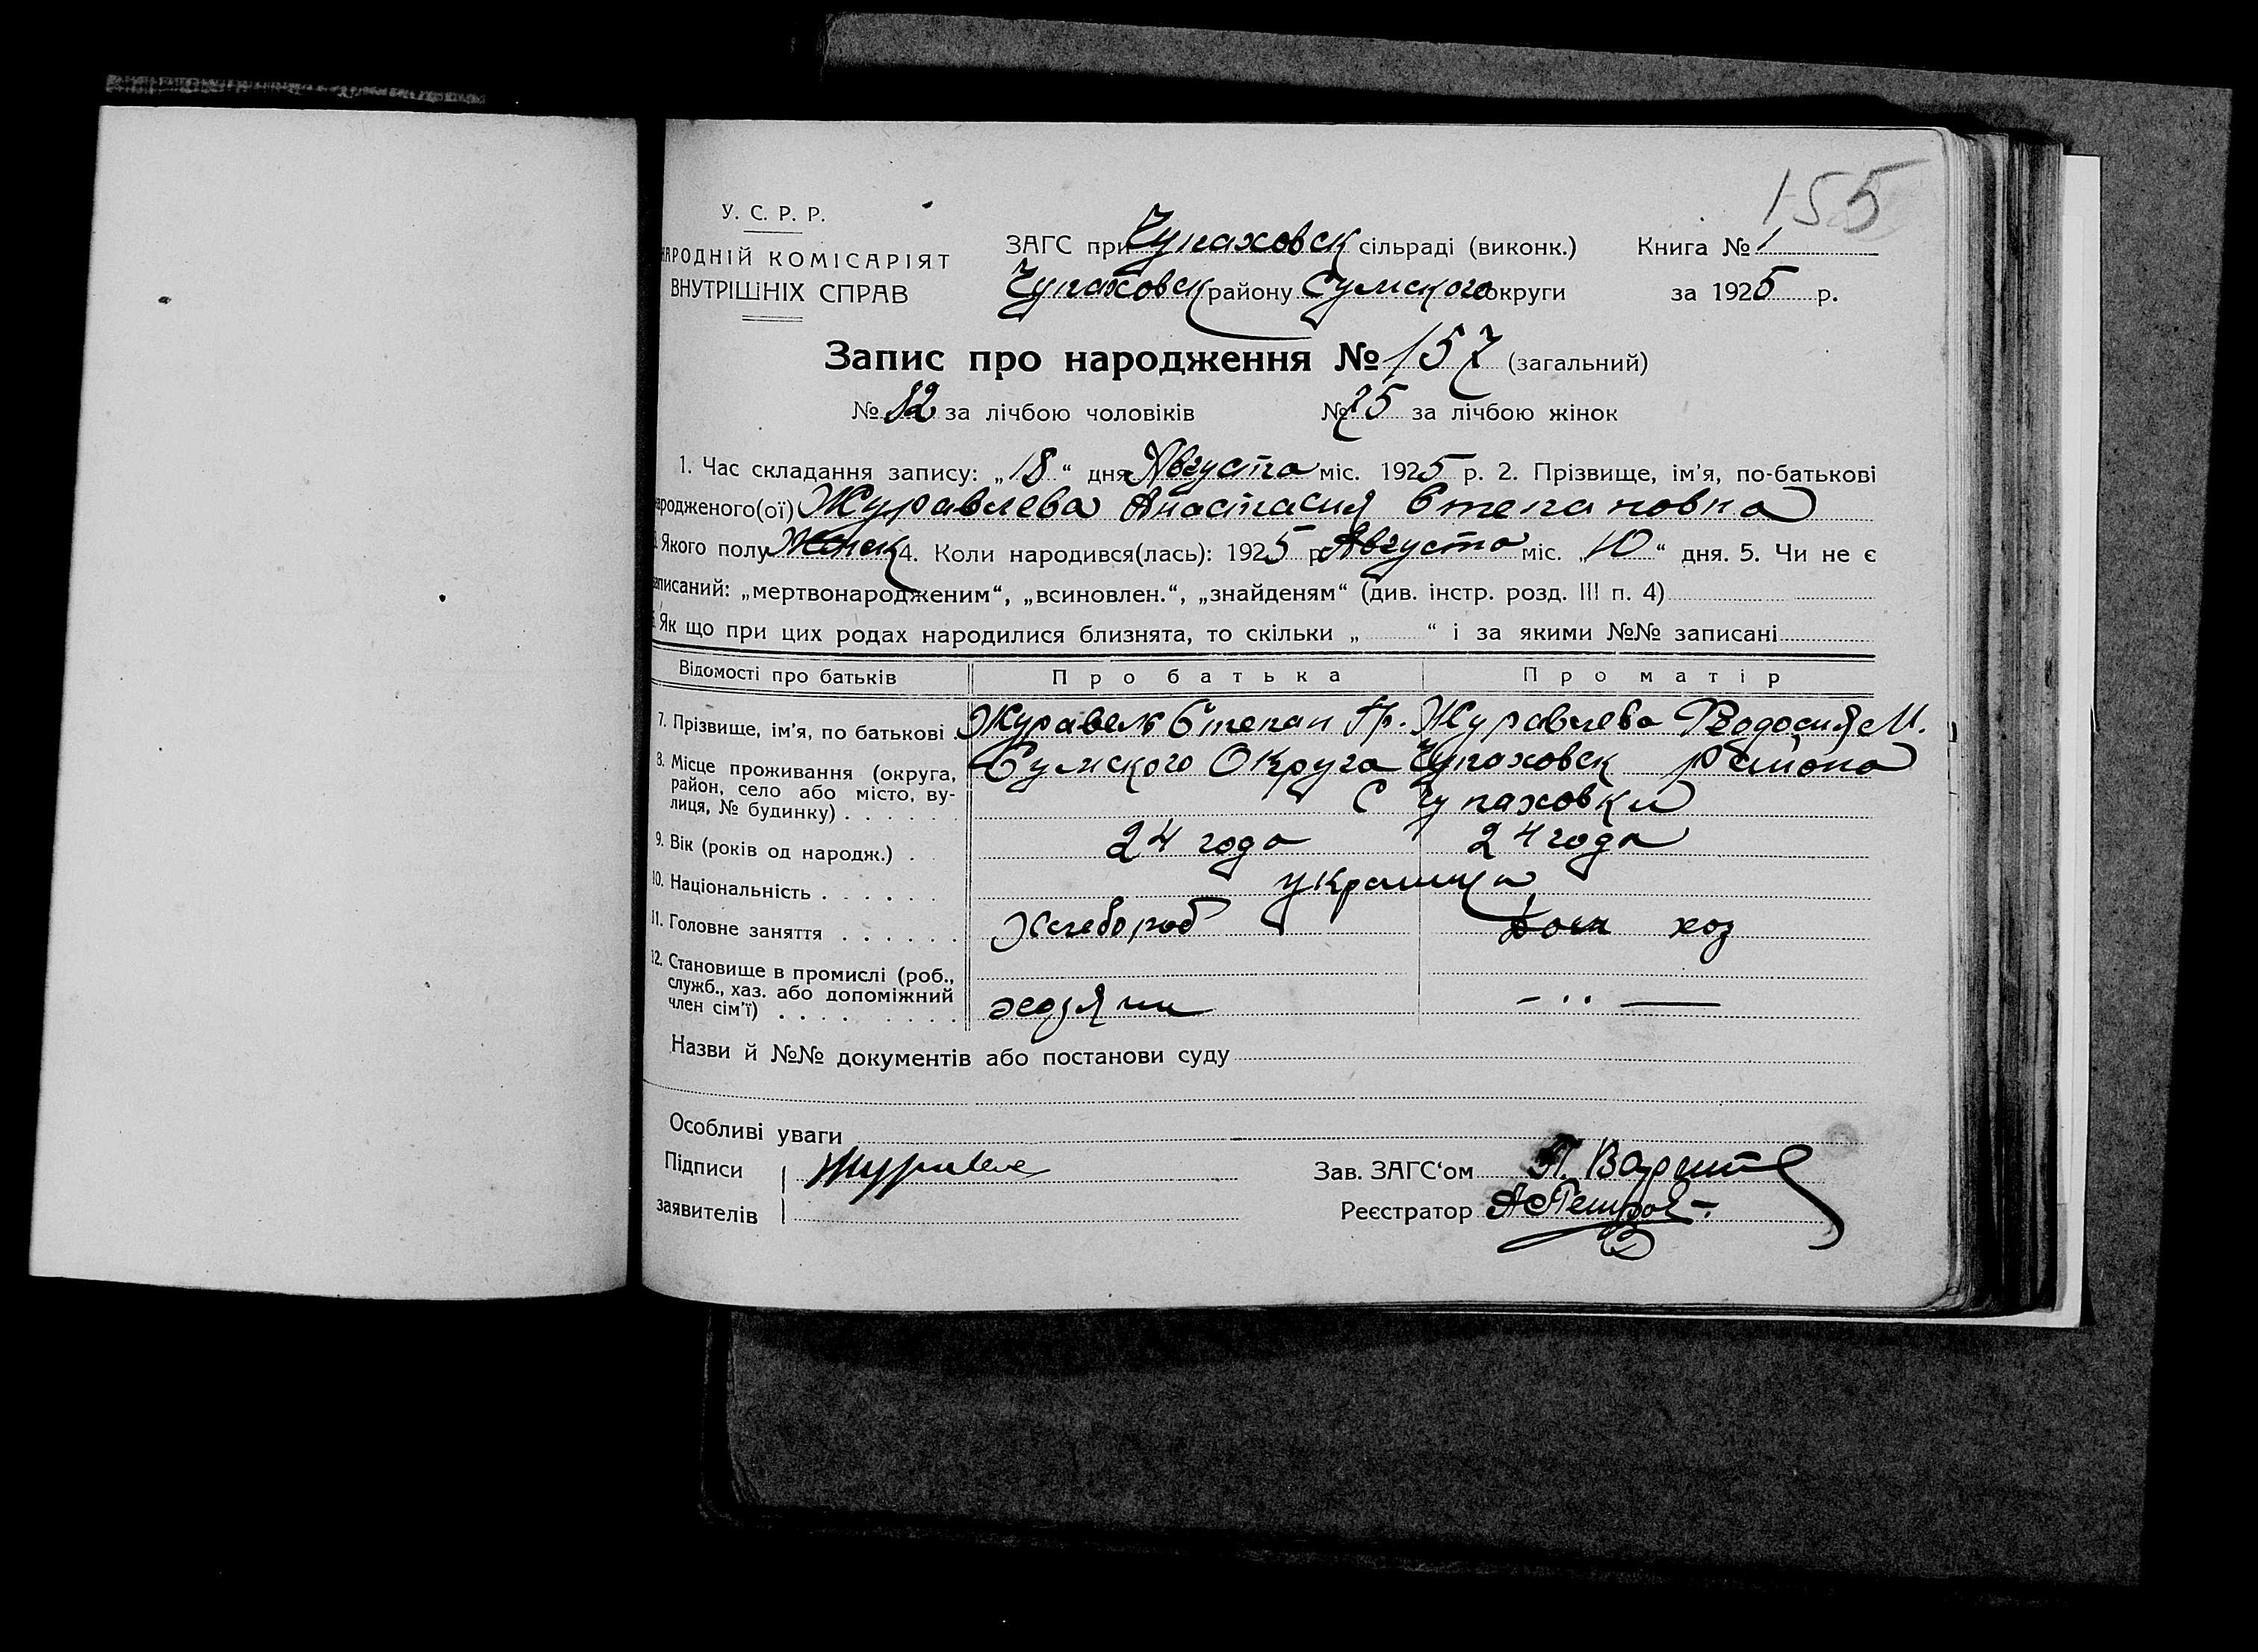 155
У. С. Р. Р.
ЗАГС при Чупаховск сільраді (виконк.) Книга № 1
АРОДНІЙ КОМІСАРІЯТ
ВНУТРІШНІХ СПРАВ
Чупаховск району Сумского округи за 1925 р.
Запис про народження № 157 (загальний)
№ 82 за лічбою чоловіків № 75 за лічбою жінок
1. Час складання запису: „18“ дня Августа міс. 1925 р. 2. Прізвище, ім'я, по-батькові
ародженого(ої) Журавлева Анастасия Степановна
Якого полу Женск 4. Коли народився(лась): 1925 р. Августа міс. „10“ дня. 5. Чи не є
записаний: „мертвонародженим“, „всиновлен.“, „знайденям“ (див. інстр. розд. III п. 4)
Як що при цих родах народилися близнята, то скільки „ “ і за якими №№ записані
Відомості про батьків Про батька Про матір
7. Прізвище, ім'я, по батькові . Журавель Степан Гр. Журавлева Феодосия М.
8. Місце проживання (округа, район, село або місто, ву-лиця, № будинку) . . . . . . Сумского Округа Чупаховск района
С Чупаховки
9. Вік (років од народж.) . 24 года 24 года
10. Національність . . . . . . украинца
11. Головне заняття . . . . . . Хлебороб Дом хоз
12. Становище в промислі (роб.,
служб., хаз. або допоміжний
член сім'ї) . . . . . . . . хозяин — ·· —
Назви й №№ документів або постанови суду
Особливі уваги
Підписи Журавель Зав. ЗАГС'ом
заявителів Реєстратор